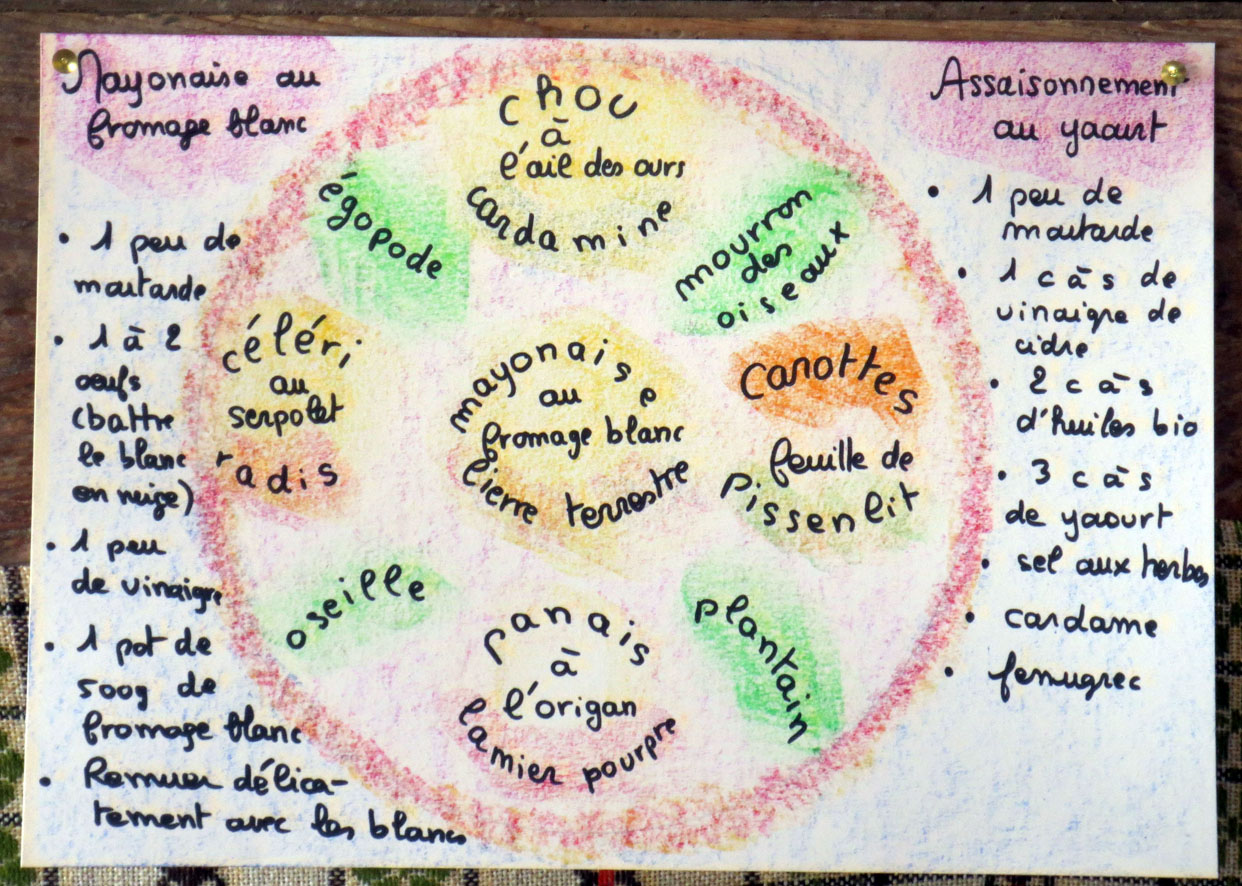 Mayonaise au
fromage blanc
• 1 peu de
moutarde
• 1 à 2
oeufs
(battre
le blanc
en neige)
• 1 peu
de vinaigre
• 1 pot de
500g de
fromage blanc
• Remuer délica-
tement avec les blancs
chou
à
l'ail des ours
cardamine
égopode
mourron
des
oiseaux
céléri
au
serpolet
radis
mayonaise
au
fromage blanc
lierre terrestre
carottes
feuille de
pissenlit
oseille
panais
à
l'origan
lamier pourpre
plantain
Assaisonnement
au yaourt
• 1 peu de
moutarde
• 1 c à s de
vinaigre de
cidre
• 2 c à s
d'huiles bio
• 3 c à s
de yaourt
• sel aux herbes
• cardame
• fenugrec